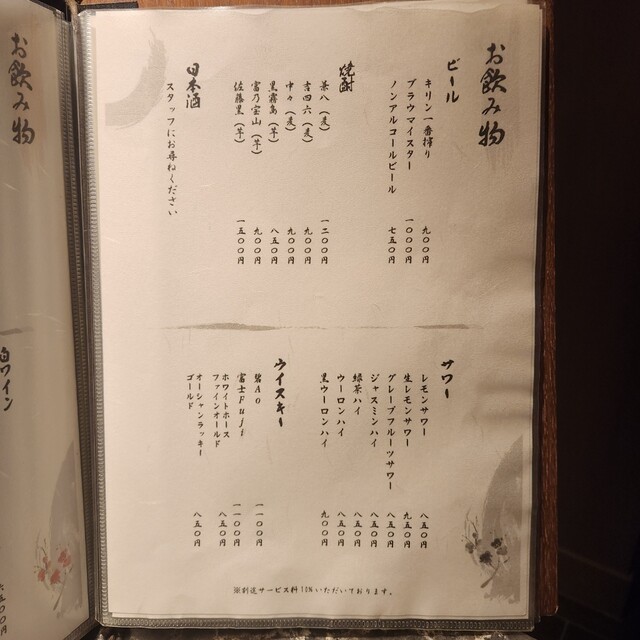 お飲み物
ビール
キリン一番搾り 九〇〇円
ブラウマイスター 一〇〇〇円
ノンアルコールビール 七五〇円
焼酎
兼八（麦） 一二〇〇円
吉四六（麦） 九〇〇円
中々（麦） 九〇〇円
黒霧島（芋） 八五〇円
富乃宝山（芋） 九〇〇円
佐藤黒（芋） 一五〇〇円
日本酒
スタッフにお尋ねください
サワー
レモンサワー 八五〇円
生レモンサワー 九五〇円
グレープフルーツサワー 八五〇円
ジャスミンハイ 八五〇円
緑茶ハイ 八五〇円
ウーロンハイ 八五〇円
黒ウーロンハイ 九〇〇円
ウイスキー
碧Ao 一一〇〇円
富士Fuji 一一〇〇円
ホワイトホース
ファインオールド 八五〇円
オーシャンラッキー
ゴールド 八五〇円
※別途サービス料10%いただいております。
お飲み物
白ワイン